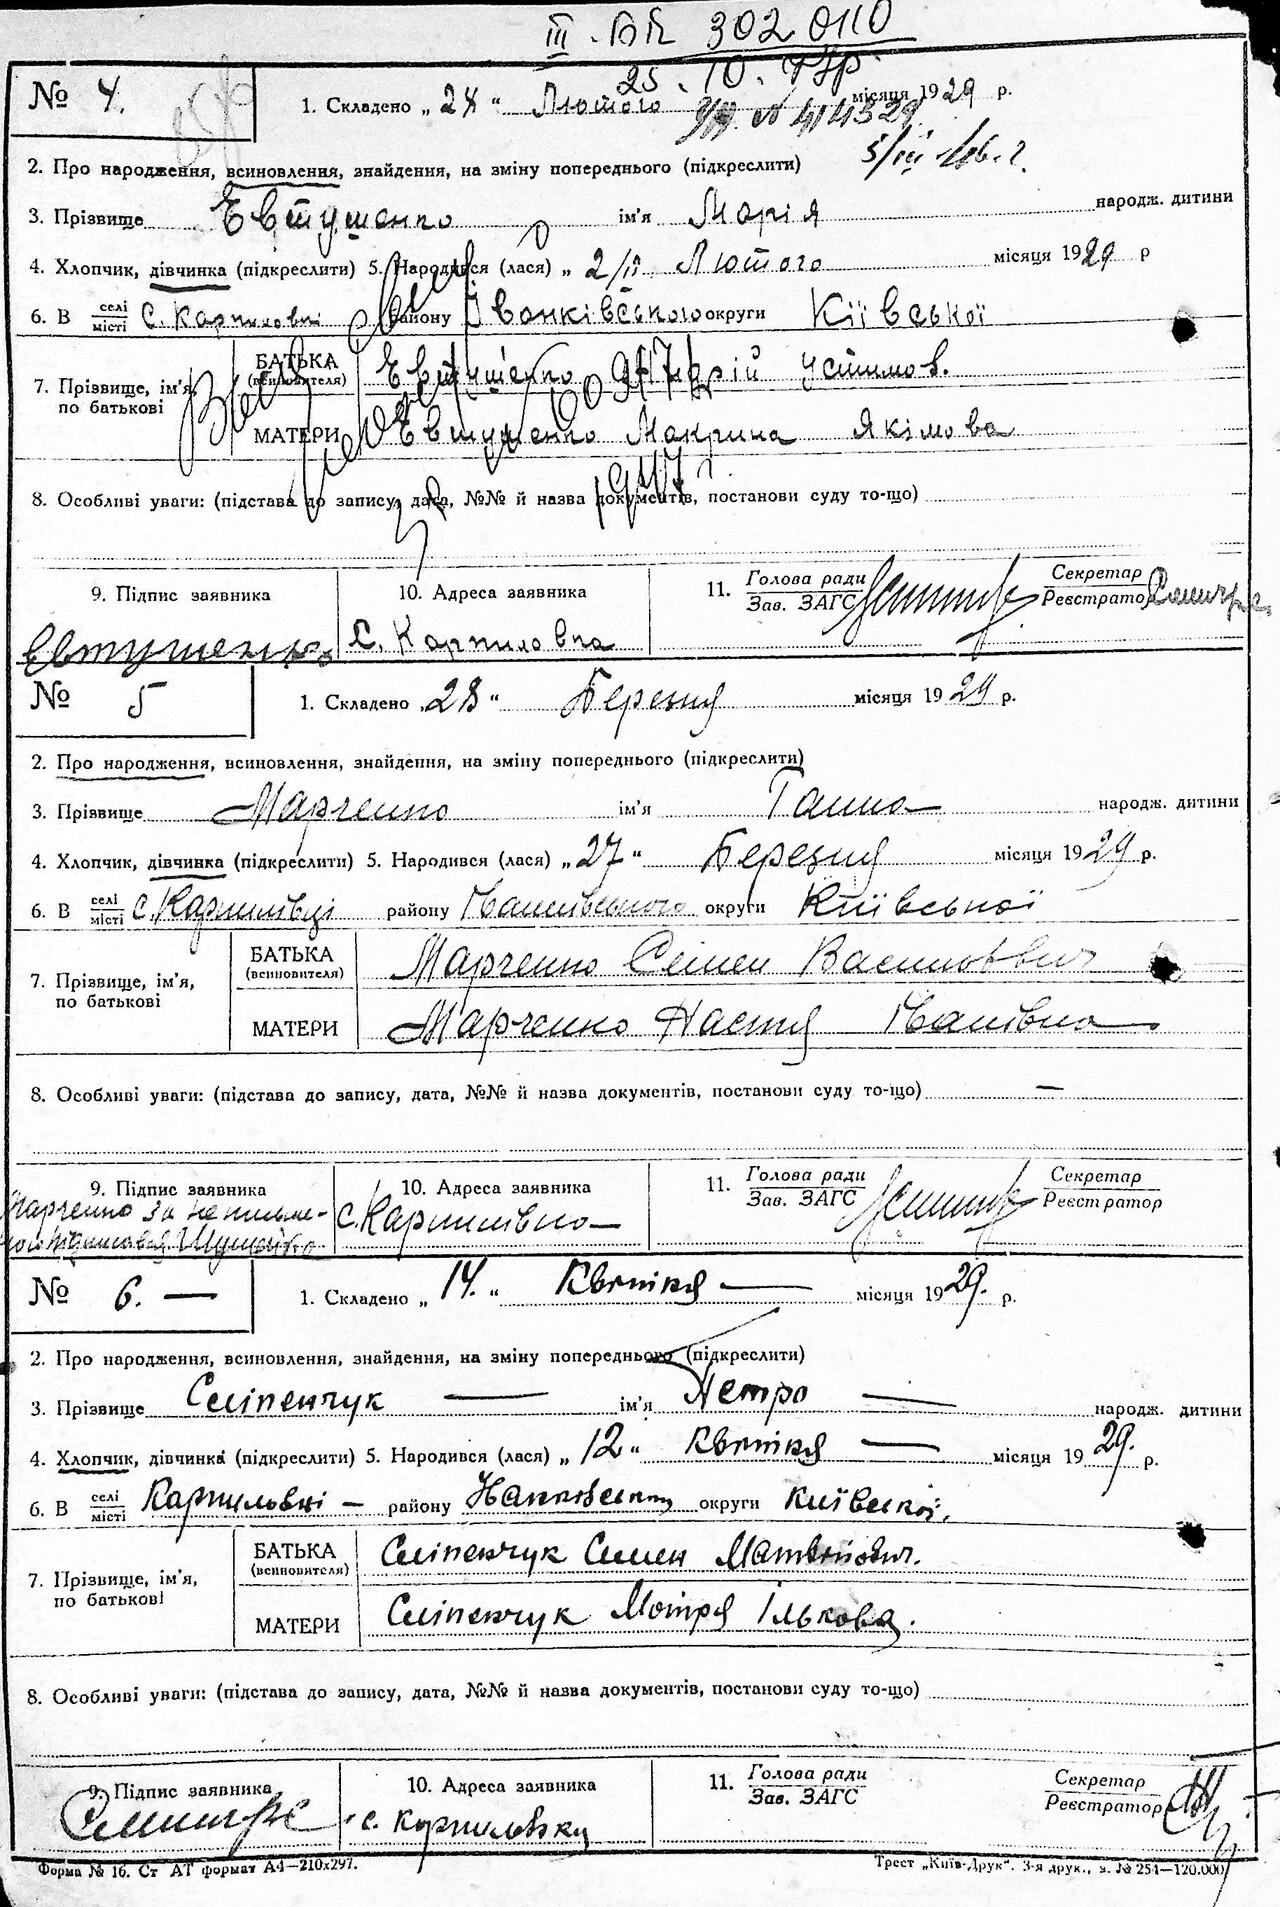 III - БК 302 0110
25.10.47р.
№ 4.
1. Складено „ 24 “ Лютого місяця 1929 р.
№ 414529
2. Про народження, всиновлення, знайдення, на зміну попереднього (підкреслити)
3. Прізвище Евтушенко ім'я Марія народж. дитини
4. Хлопчик, дівчинка (підкреслити) 5. Народився (лася) „ 2/II Лютого місяця 1929 р
6. В селі/місті с. Карпиловці району Іванківського округи Кіївської
7. Прізвище, ім'я, по батькові
БАТЬКА (всиновителя) Евтушенко Устимов.
МАТЕРИ Евтушенко Макрина Якімова
1947 г.
8. Особливі уваги: (підстава до запису, дата, №№ й назва документів, постанови суду то-що)
9. Підпис заявника 10. Адреса заявника 11. Голова ради/Зав. ЗАГС Секретар/Реєстратор
Евтушенко с. Карпиловка
№ 5
1. Складено „ 28 “ Березня місяця 1929 р.
2. Про народження, всиновлення, знайдення, на зміну попереднього (підкреслити)
3. Прізвище Марченко ім'я Ганна народж. дитини
4. Хлопчик, дівчинка (підкреслити) 5. Народився (лася) „ 27 “ Березня місяця 1929 р.
6. В селі/місті с. Карпилівці району Іванківського округи Київської
7. Прізвище, ім'я, по батькові
БАТЬКА (всиновителя) Марченко Семен Васильович
МАТЕРИ Марченко Настя Іванівна
8. Особливі уваги: (підстава до запису, дата, №№ й назва документів, постанови суду то-що) —
9. Підпис заявника 10. Адреса заявника 11. Голова ради/Зав. ЗАГС Секретар/Реєстратор
Марченко за неписьме-
с. Карпилівка
№ 6. —
1. Складено „ 14. “ Квітня — місяця 1929. р.
2. Про народження, всиновлення, знайдення, на зміну попереднього (підкреслити)
3. Прізвище Сліпенчук — ім'я Петро — народж. дитини
4. Хлопчик, дівчинка (підкреслити) 5. Народився (лася) „ 12 “ Квітня — місяця 1929. р.
6. В селі/місті Карпиловці — району округи Київської.
7. Прізвище, ім'я, по батькові
БАТЬКА (всиновителя) Сліпенчук Семен Матвійович.
МАТЕРИ Сліпенчук Мотря Ількова.
8. Особливі уваги: (підстава до запису, дата, №№ й назва документів, постанови суду то-що)
9. Підпис заявника 10. Адреса заявника 11. Голова ради/Зав. ЗАГС Секретар/Реєстратор
с. Карпиловка
Форма № 16. Ст АТ формат А4—210х297. Трест „Київ-Друк“. 3-я друк., з. № 254—120.000